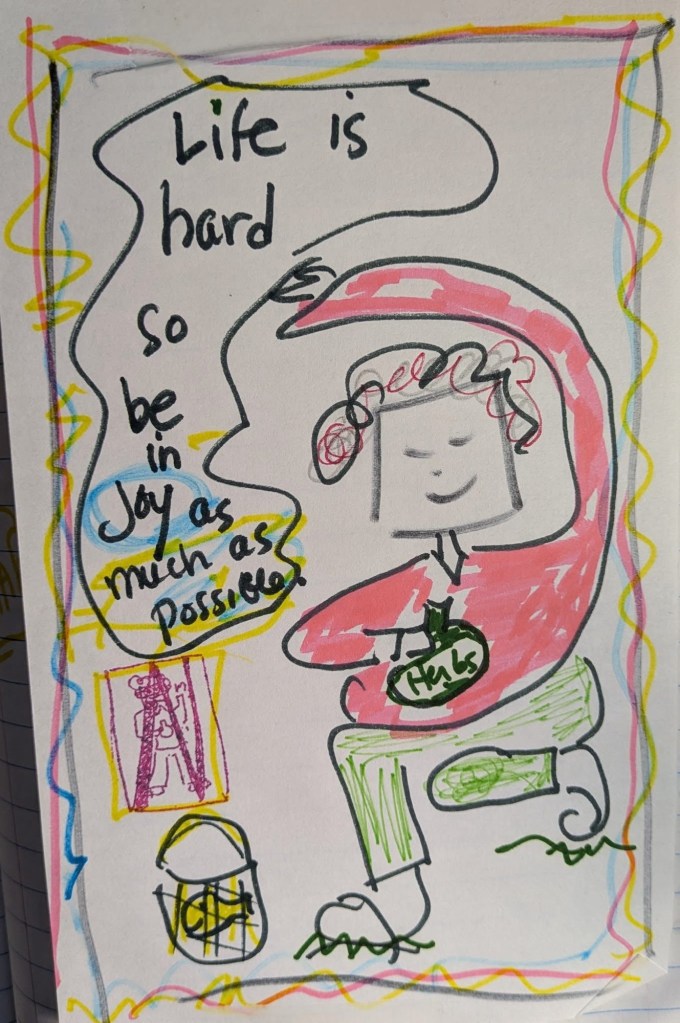 Life is
hard
so
be
in
Joy as
much as
possible.
Herbs